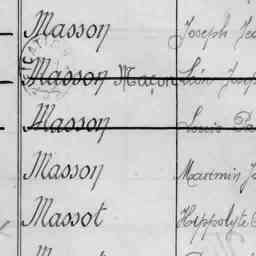 Masson Joseph
Masson Maçon Léon
Masson Louis
Masson Maximin
Massot Hippolyte